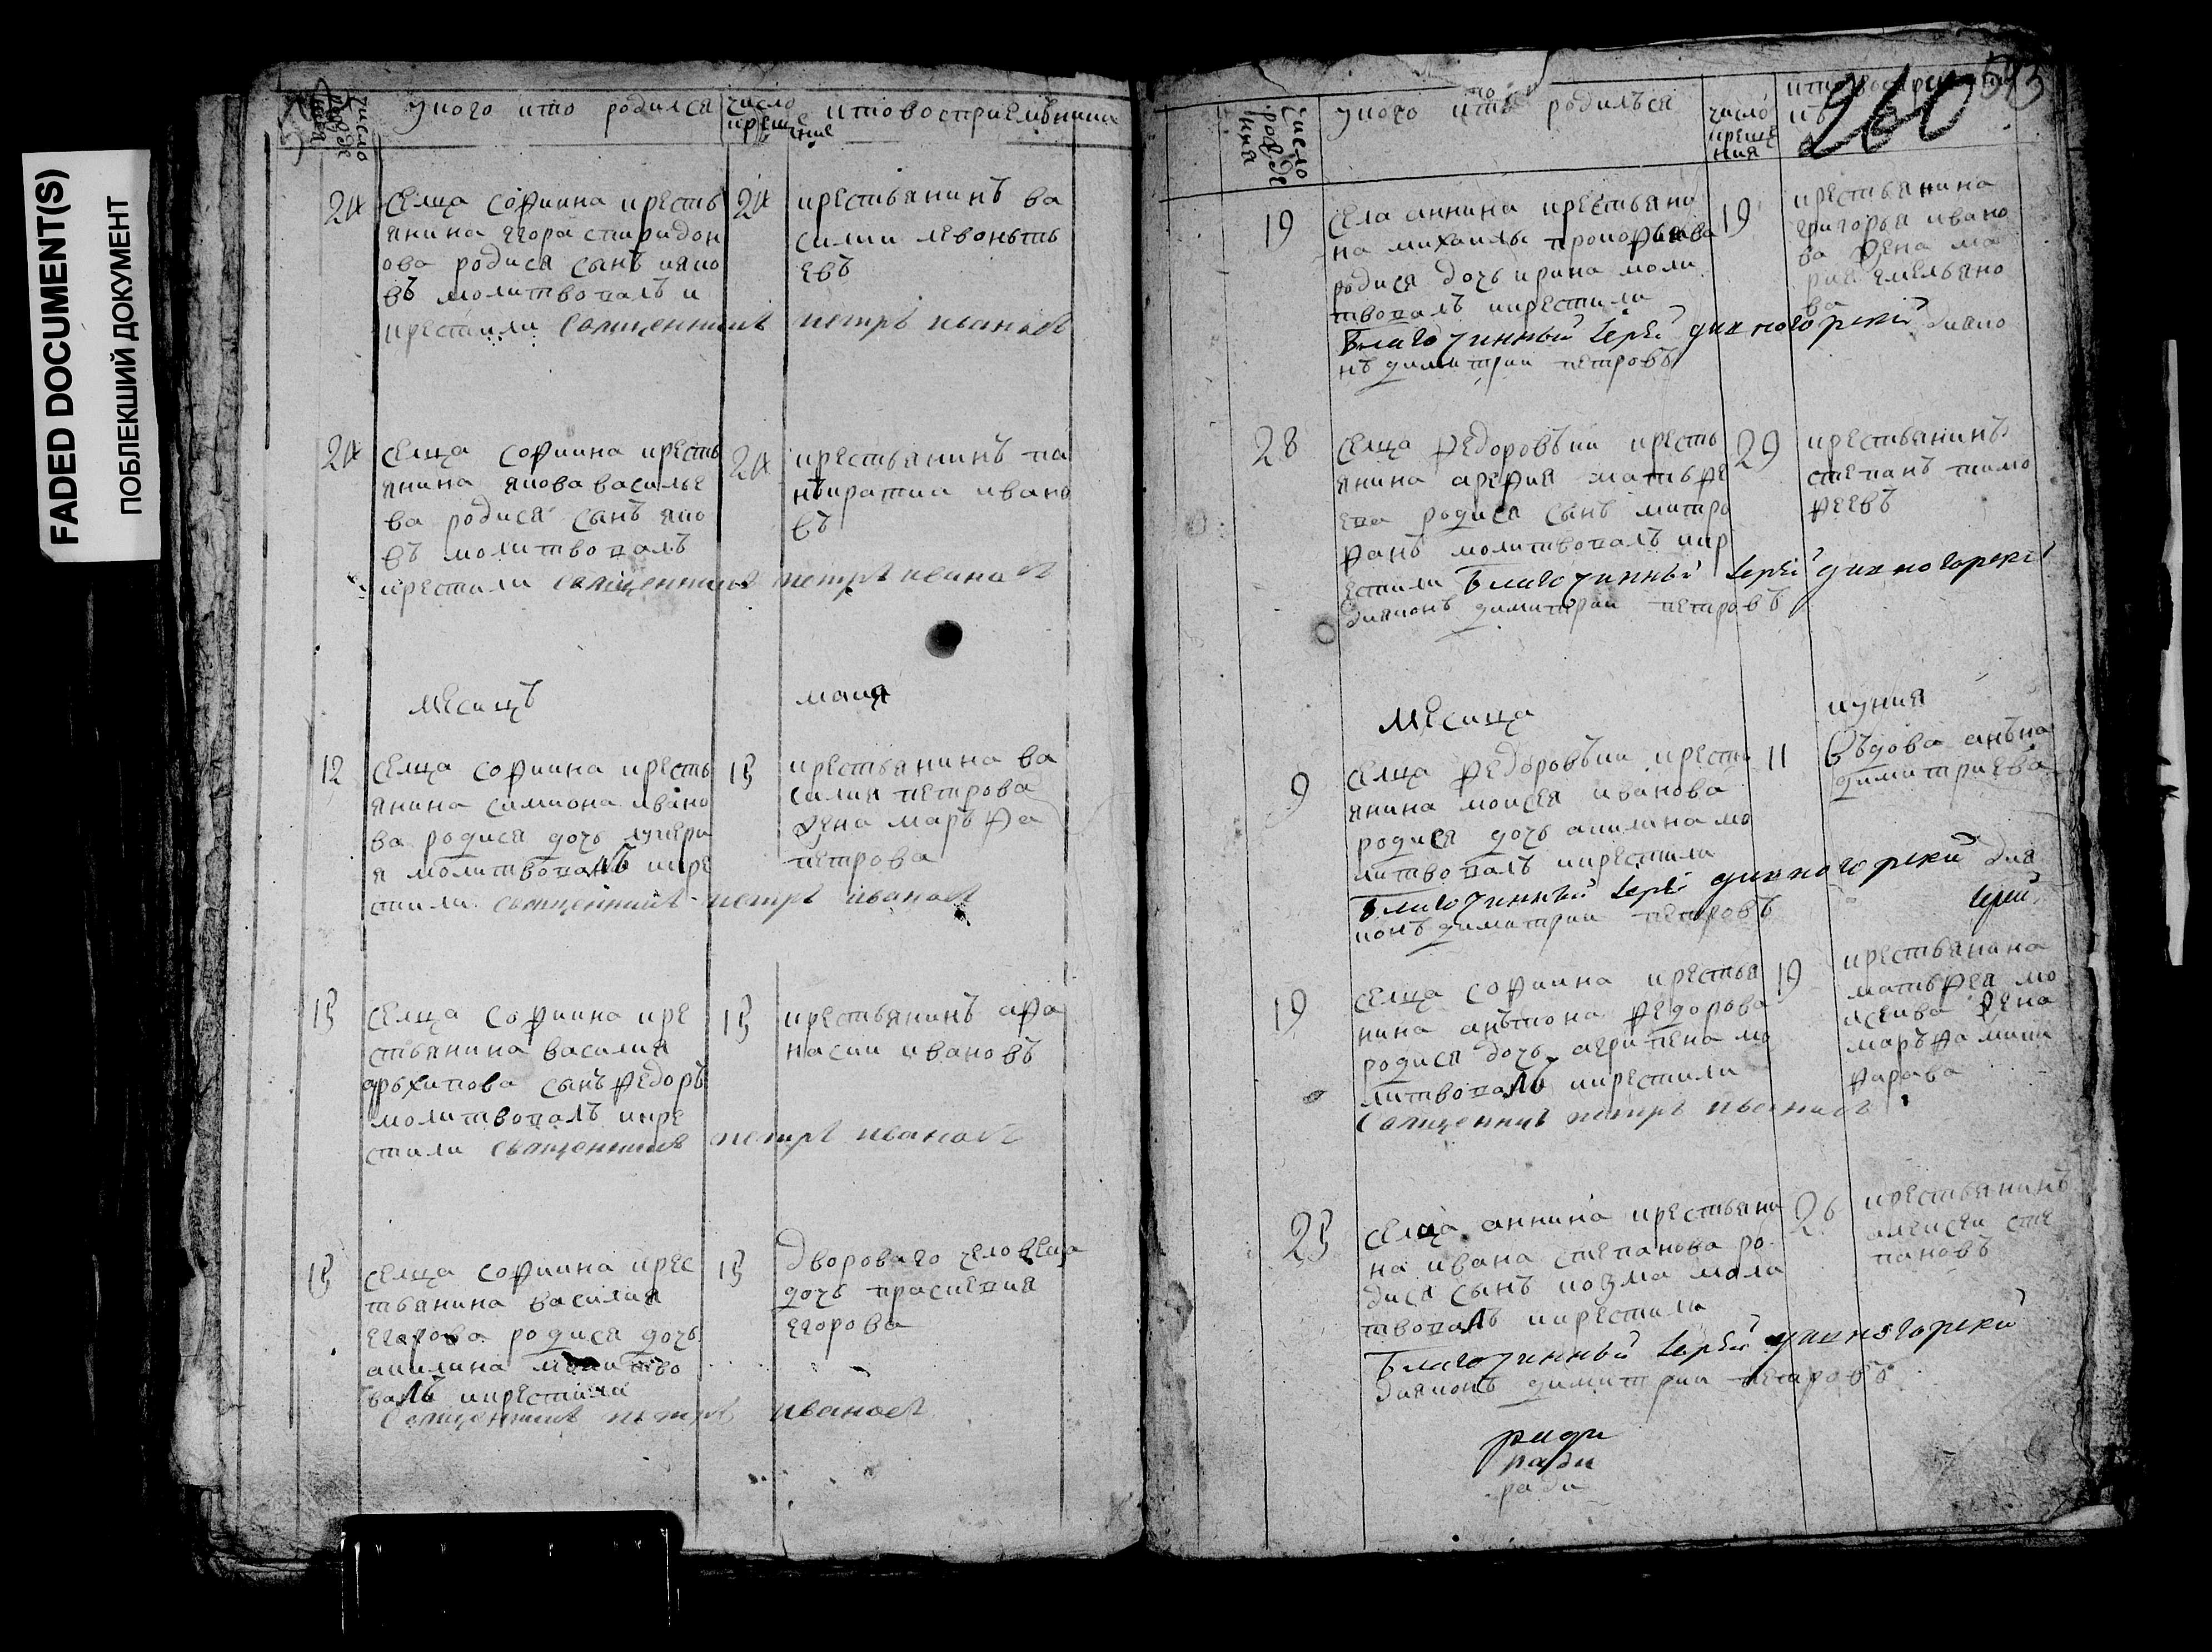 FADED DOCUMENT(S)
ПОБЛЕКШИЙ ДОКУМЕНТ
число рожде ния
у кого кто родился
число креще ние
кто восприемьники
24
селца софиина кресть
янина егора спиридон
ова родися сынъ иако
въ молитвовалъ и
крестили священникъ петръ ивановъ
24
крестьянинъ ва
силии левоньть
евъ
24
селца софиина кресть
янина якова василье
ва родися сынъ яко
въ молитвовалъ
крестили священникъ петръ ивановъ
24
крестьянинъ па
нькратии ивано
въ
месицъ маия
12
селца софиина кресть
янина симиона ивано
ва родися дочь лукери
я молитвовалъ икре
стили священникъ петръ ивановъ
13
крестьянина ва
силия петрова
жена маръфа
петрова
13
селца софиина кре
стьянина василия
архипова сынъ федоръ
молитвовалъ икре
стили священникъ петръ ивановъ
13
крестьянинъ афа
насии ивановъ
13
селца софиина крес
тьянина василия
егорова родися дочь
акилина молитво
валъ икрестили
священникъ петръ ивановъ
13
дворового человека
дочь праскевия
егорова
260
число рожде ния
у кого кто родилъся
число креще ния
19
села аннина крестьяни
на михаилы прокофьева
родися дочь ирина моли
твовалъ икрестили
Благочинный іерей дивногорский диако
нъ димитрии петровъ
19
крестьянина
григорья ивано
ва жена ма
рия емельяно
ва
28
селца федоровъки кресть
янина арефия матьфе
ева родися сынъ митро
фанъ молитвовалъ икр
естили Благочинный іерей дивногорский
диаконъ димитрии петровъ
29
крестьянинъ
степанъ тимо
феевъ
месица иуния
9
селца федоровъки кресть
янина моисея иванова
родися дочь акилина мо
литвовалъ икрестили
Благочинный іерей дивногорский диа
конъ димитрии петровъ
11
въдова анъна
димитриева
іерей
19
селца софиина крестья
нина анътона федорова
родися дочь агрипена мо
литвовалъ икрестили
священникъ петръ ивановъ
19
крестьянина
матьфея мо
исеива жена
маръфа
25
селца аннина крестьяни
на ивана степанова ро
дися сынъ козма моли
твовалъ икрестили
Благочинный іерей дивногорский
диаконъ димитрии петровъ
26
крестьянинъ
алексеи сте
пановъ
ради
ради
ради